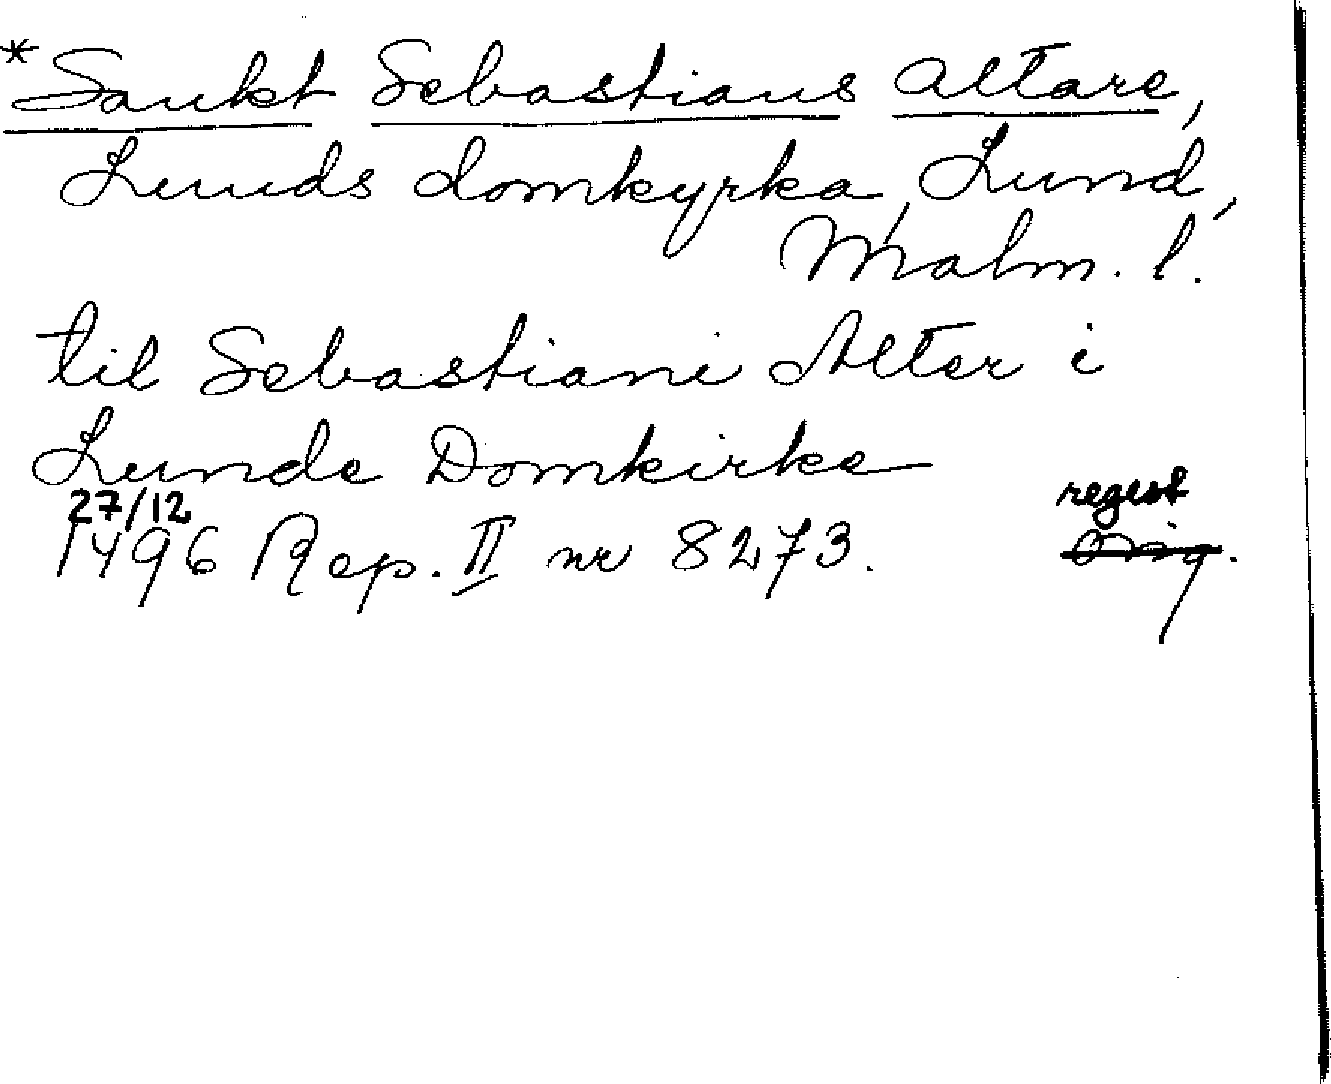 *Sankt Sebastians altare,
Lunds domkyrka, Lund,
Malm. l.
til Sebastiani Alter i
Lunde Domkirke
27/12 regest
1496 Rep. II nr 8273. orig.